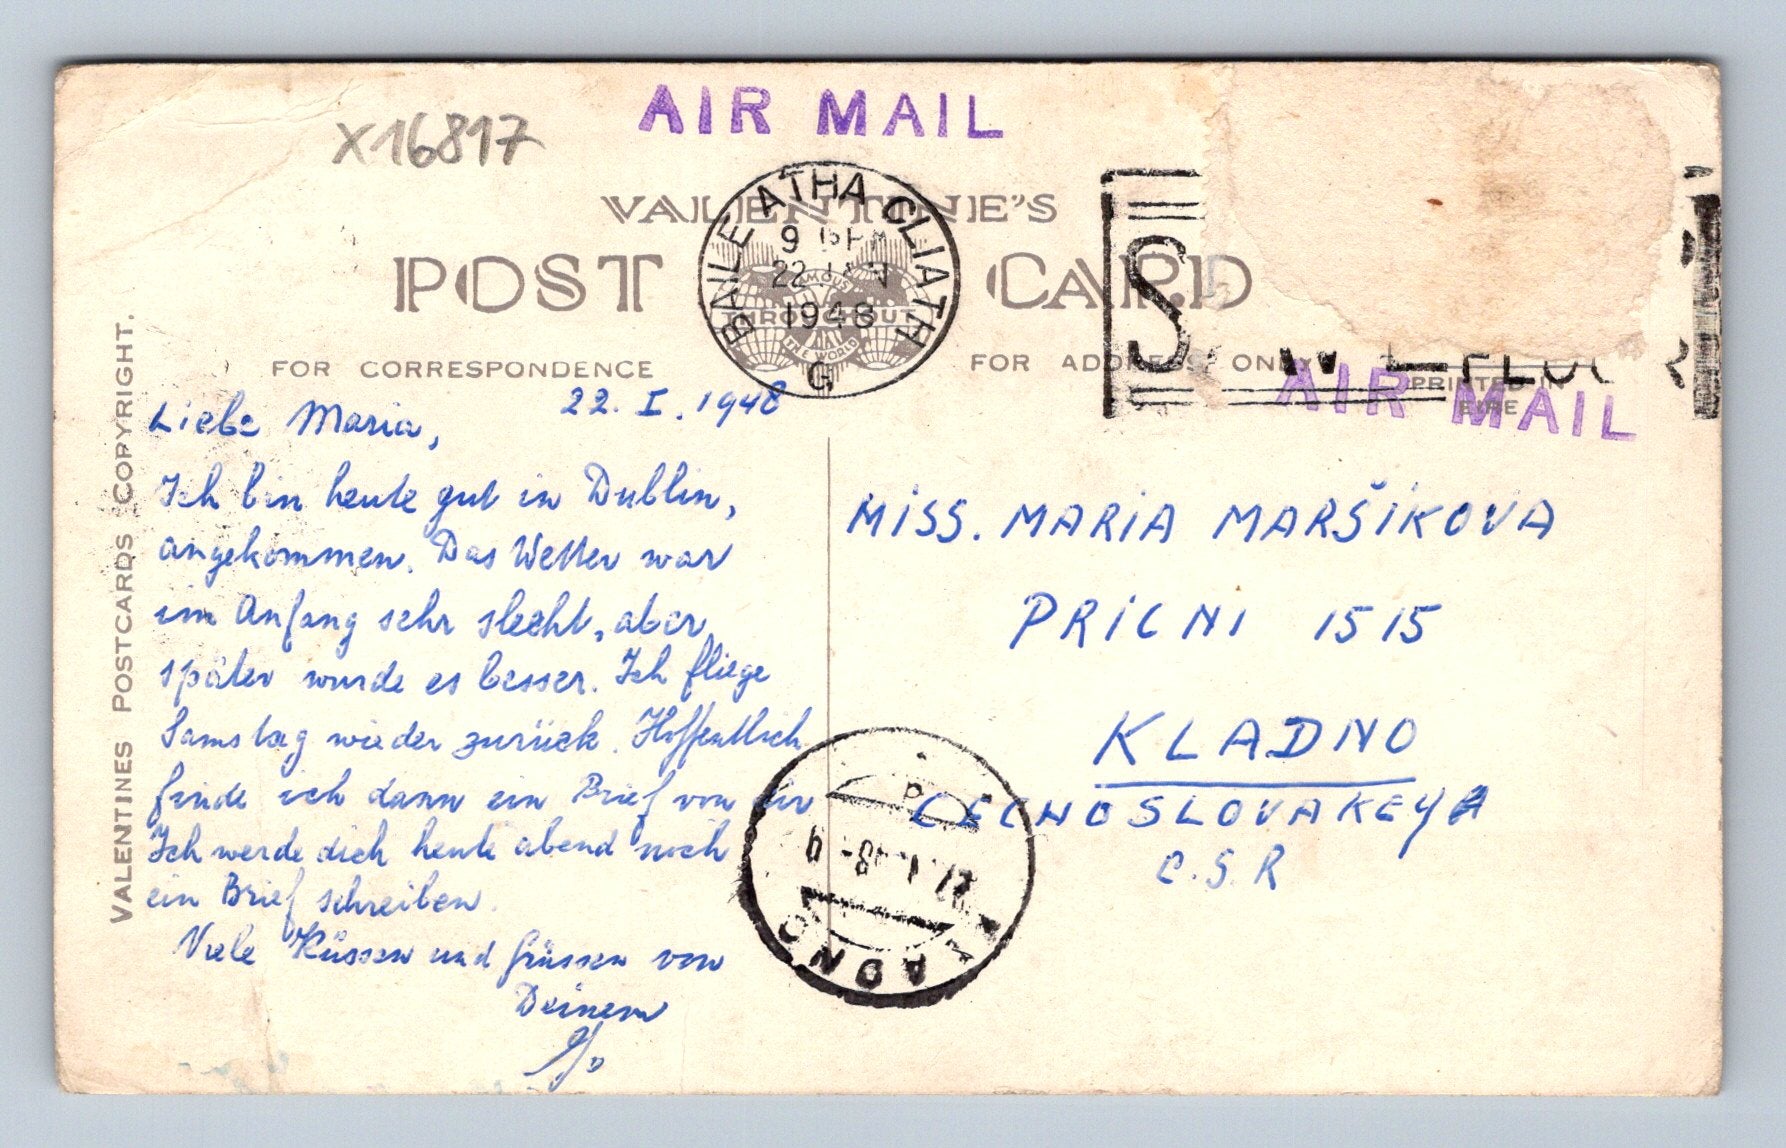 X16817
AIR MAIL
VALENTINE'S
POST CARD
BAILE ATHA CLIATH
22 JAN
1948
G
FAMOUS
THROUGHOUT
THE WORLD
FOR CORRESPONDENCE
FOR ADDRESS ONLY
PRINTED IN
EIRE
AIR MAIL
VALENTINES POSTCARDS COPYRIGHT.
22. I. 1948
Liebe Maria,
Ich bin heute gut in Dublin,
angekommen. Das Wetter war
im Anfang sehr slecht, aber
später wurde es besser. Ich fliege
Samstag wieder zurück. Hoffentlich
finde ich dann ein Brief von dir
Ich werde dich heute abend noch
ein Brief schreiben.
Viele Küssen und Grüssen von
Deinem
MISS. MARIA MARŠIKOVA
PRICNI 1515
KLADNO
CECHOSLOVAKEYA
C.S.R
KLADNO